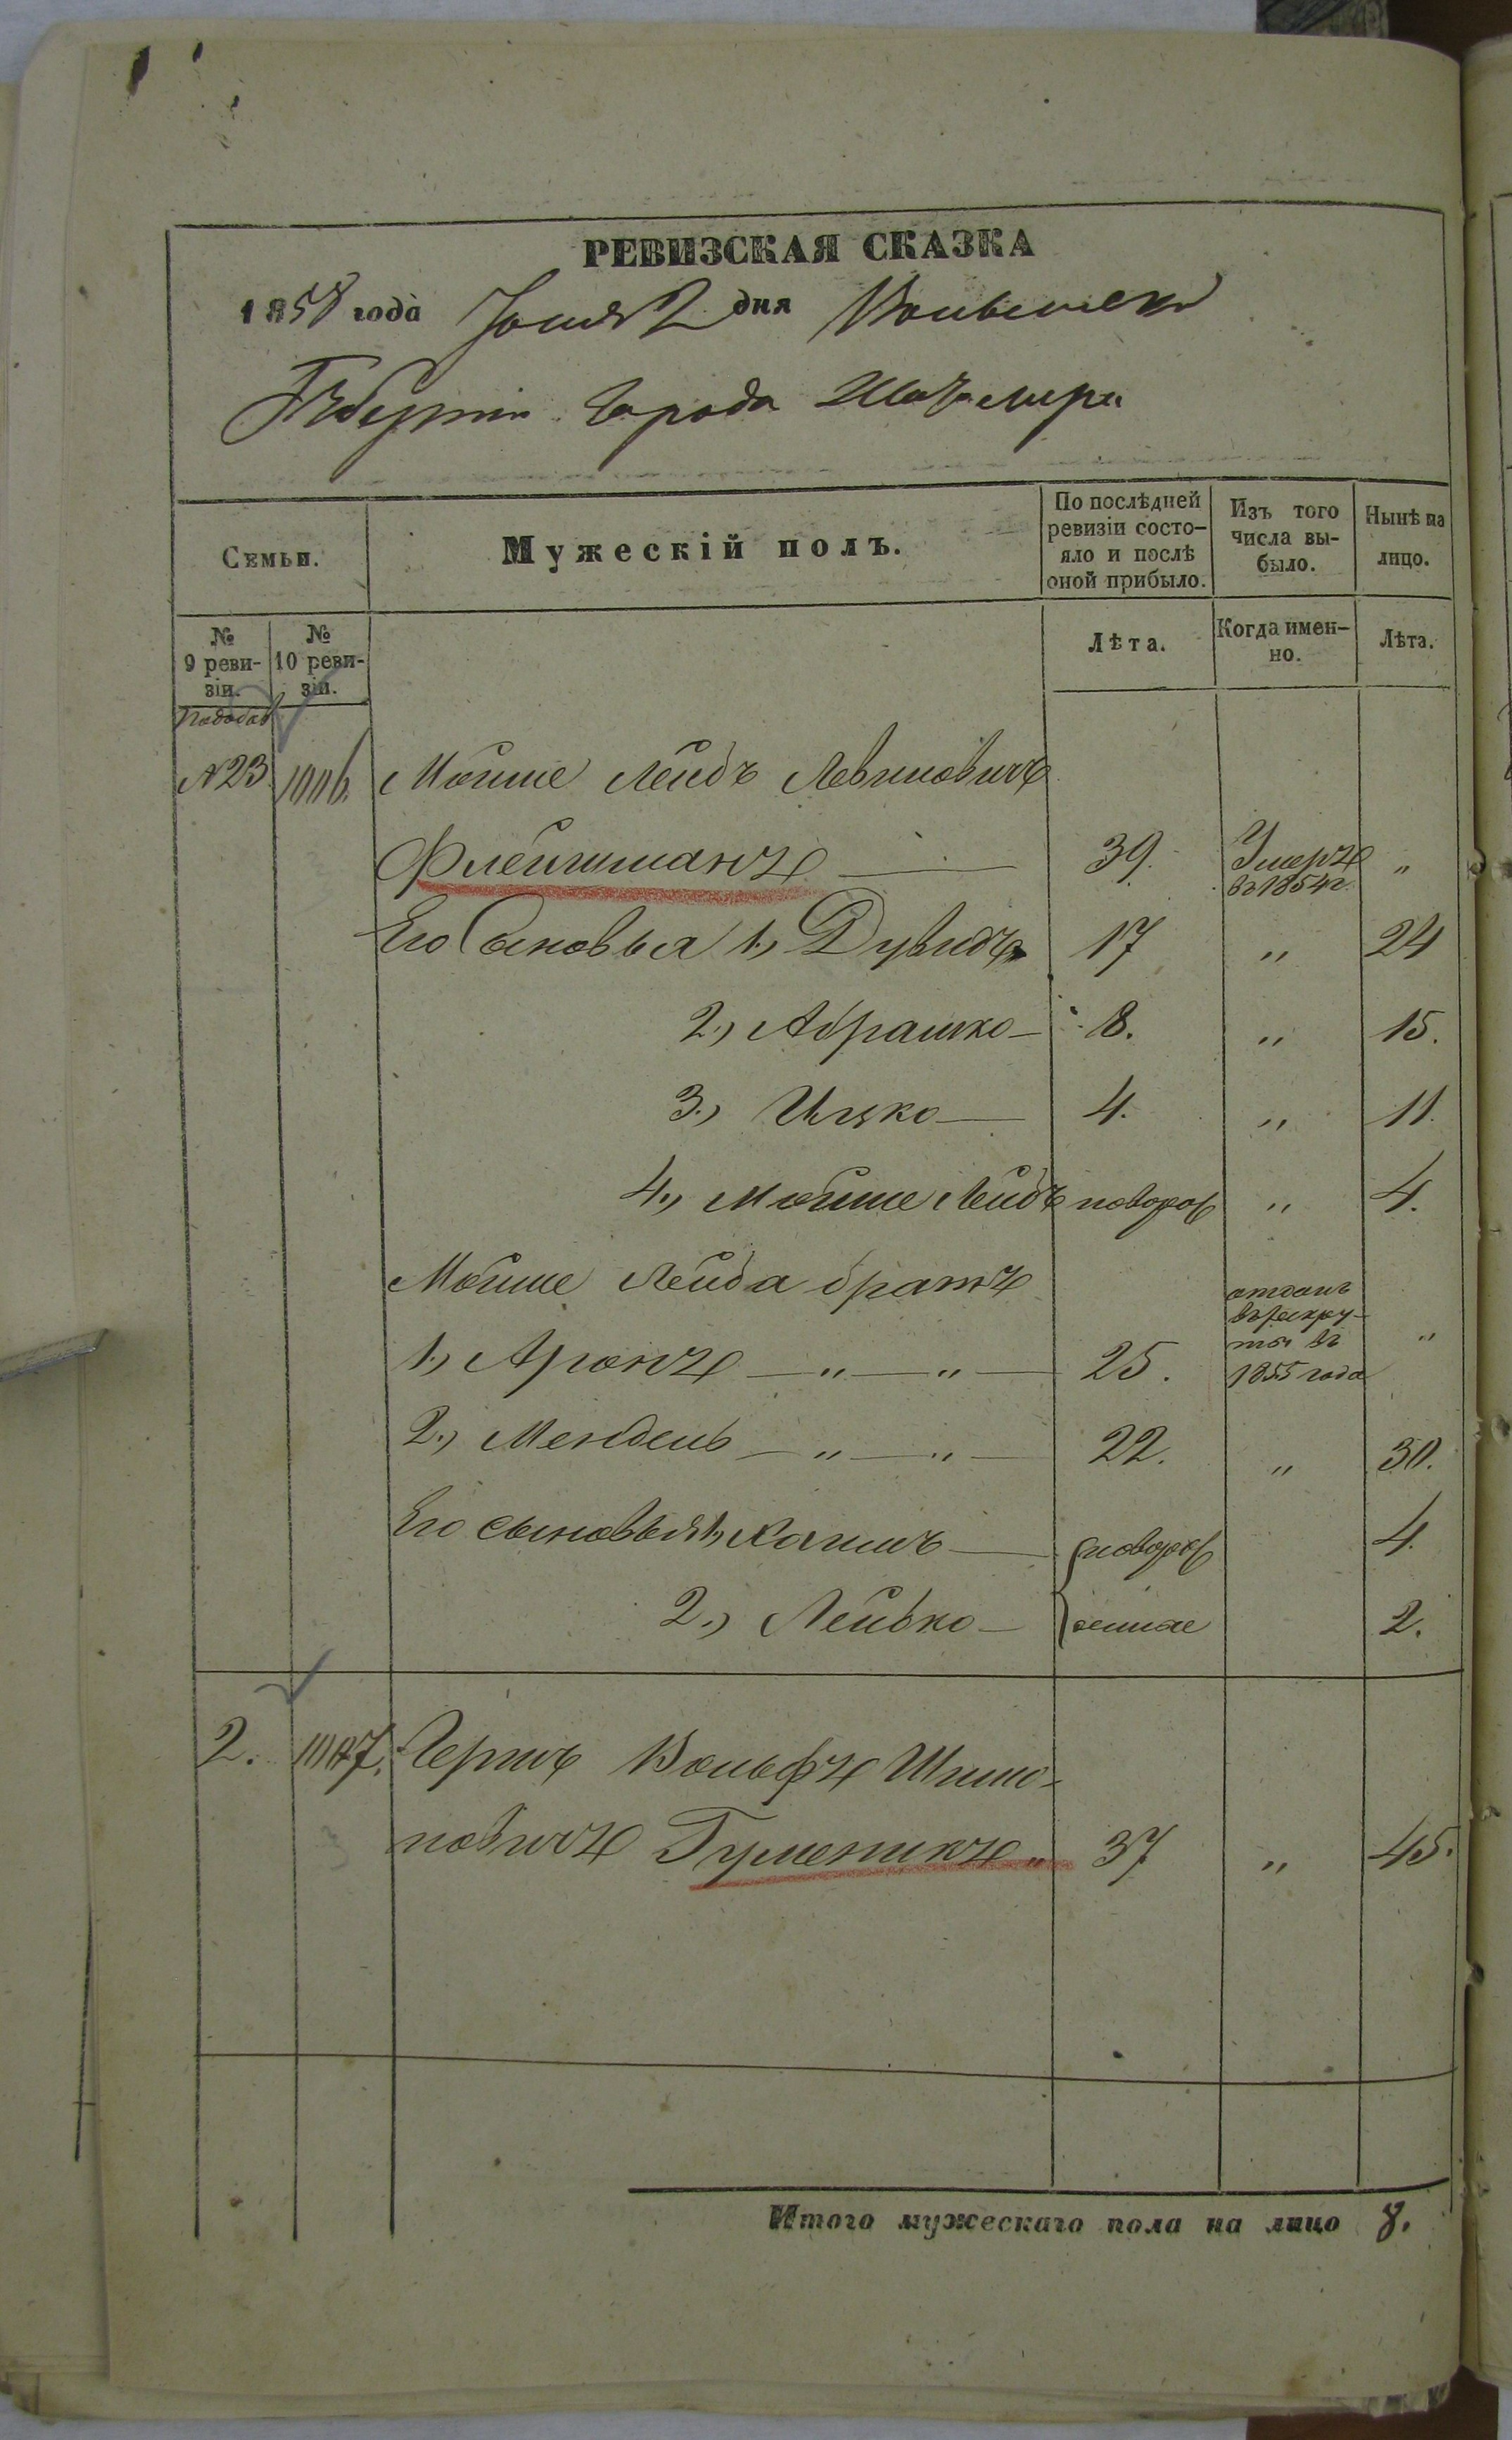 РЕВИЗСКАЯ СКАЗКА
1858 года Іюня 2 дня Волынской
Губерніи Города Житомира
Семьи.
Мужескій полъ.
По послѣдней ревизіи состо-
яло и послѣ оной прибыло.
Изъ того числа вы-
было.
Нынѣ на лицо.
№ 9 реви-
зіи.
№ 10 реви-
зіи.
Лѣта.
Когда имен-
но.
Лѣта.
№ 23 1006. Мойше Лейбъ Левиковичъ
Флейшманъ — 39. Умеръ въ 1854 г. "
Его Сыновья 1.) Дувидъ 17 " 24
2.) Абрашко — 8. " 15.
3.) Ицко — 4. " 11.
4.) Мойше Лейбъ новорож " 4.
Мойше Лейба братъ
1.) Аронъ — " — " — 25. отданъ въ рекру-
ты въ 1855 года "
2.) Мендель — " — " — 22. " 30.
Его сыновья 1.) Хаимъ — новорож 4.
2.) Лейбко — денные 2.
2. 1007. Гершъ Вольфъ Шимо-
новичъ Гуменикъ " 37 " 45.
Итого мужескаго пола на лицо 8.